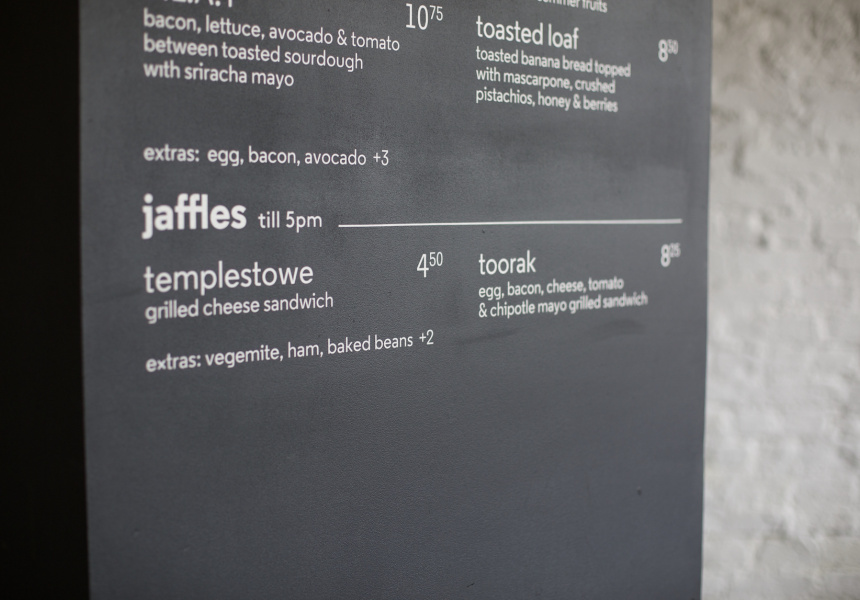 10⁷⁵
bacon, lettuce, avocado & tomato
between toasted sourdough
with sriracha mayo
extras: egg, bacon, avocado +3
fruits
toasted loaf 8⁵⁰
toasted banana bread topped
with mascarpone, crushed
pistachios, honey & berries
jaffles till 5pm
templestowe 4⁵⁰
grilled cheese sandwich
extras: vegemite, ham, baked beans +2
toorak
egg, bacon, cheese, tomato
& chipotle mayo grilled sandwich